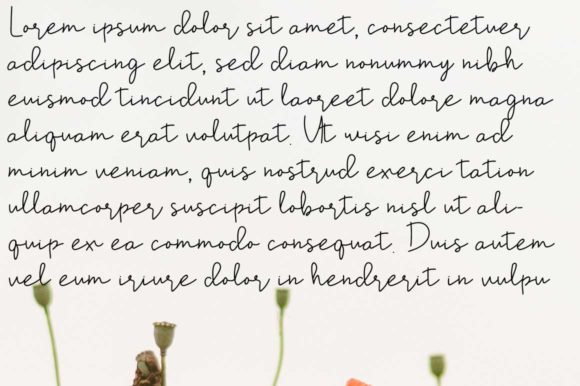 Lorem ipsum dolor sit amet, consectetuer
adipiscing elit, sed diam nonummy nibh
euismod tincidunt ut laoreet dolore magna
aliquam erat volutpat. Ut wisi enim ad
minim veniam, quis nostrud exerci tation
ullamcorper suscipit lobortis nisl ut ali-
quip ex ea commodo consequat. Duis autem
vel eum iriure dolor in hendrerit in vulpu